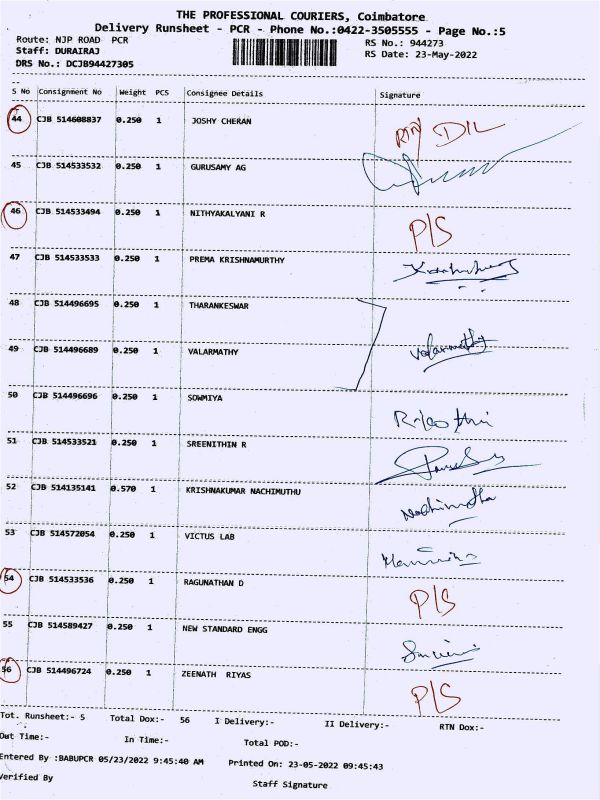 THE PROFESSIONAL COURIERS, Coimbatore
Delivery Runsheet - PCR - Phone No.:0422-3505555 - Page No.:5
Route: NJP ROAD PCR
RS No.: 944273
Staff: DURAIRAJ
RS Date: 23-May-2022
DRS No.: DCJB94427305
S No Consignment No Weight PCS Consignee Details Signature
44 CJB 514608837 0.250 1 JOSHY CHERAN RTN DIL
45 CJB 514533532 0.250 1 GURUSAMY AG
46 CJB 514533494 0.250 1 NITHYAKALYANI R P/S
47 CJB 514533533 0.250 1 PREMA KRISHNAMURTHY
48 CJB 514496695 0.250 1 THARANKESWAR
49 CJB 514496689 0.250 1 VALARMATHY Valarmathy
50 CJB 514496696 0.250 1 SOWMIYA
51 CJB 514533521 0.250 1 SREENITHIN R
52 CJB 514135141 0.570 1 KRISHNAKUMAR NACHIMUTHU Nachimuthu
53 CJB 514572054 0.250 1 VICTUS LAB
54 CJB 514533536 0.250 1 RAGUNATHAN D P/S
55 CJB 514589427 0.250 1 NEW STANDARD ENGG
56 CJB 514496724 0.250 1 ZEENATH RIYAS P/S
Tot. Runsheet:- 5 Total Dox:- 56 I Delivery:- II Delivery:- RTN Dox:-
Out Time:- In Time:- Total POD:-
Entered By :BABUPCR 05/23/2022 9:45:40 AM Printed On: 23-05-2022 09:45:43
Verified By Staff Signature